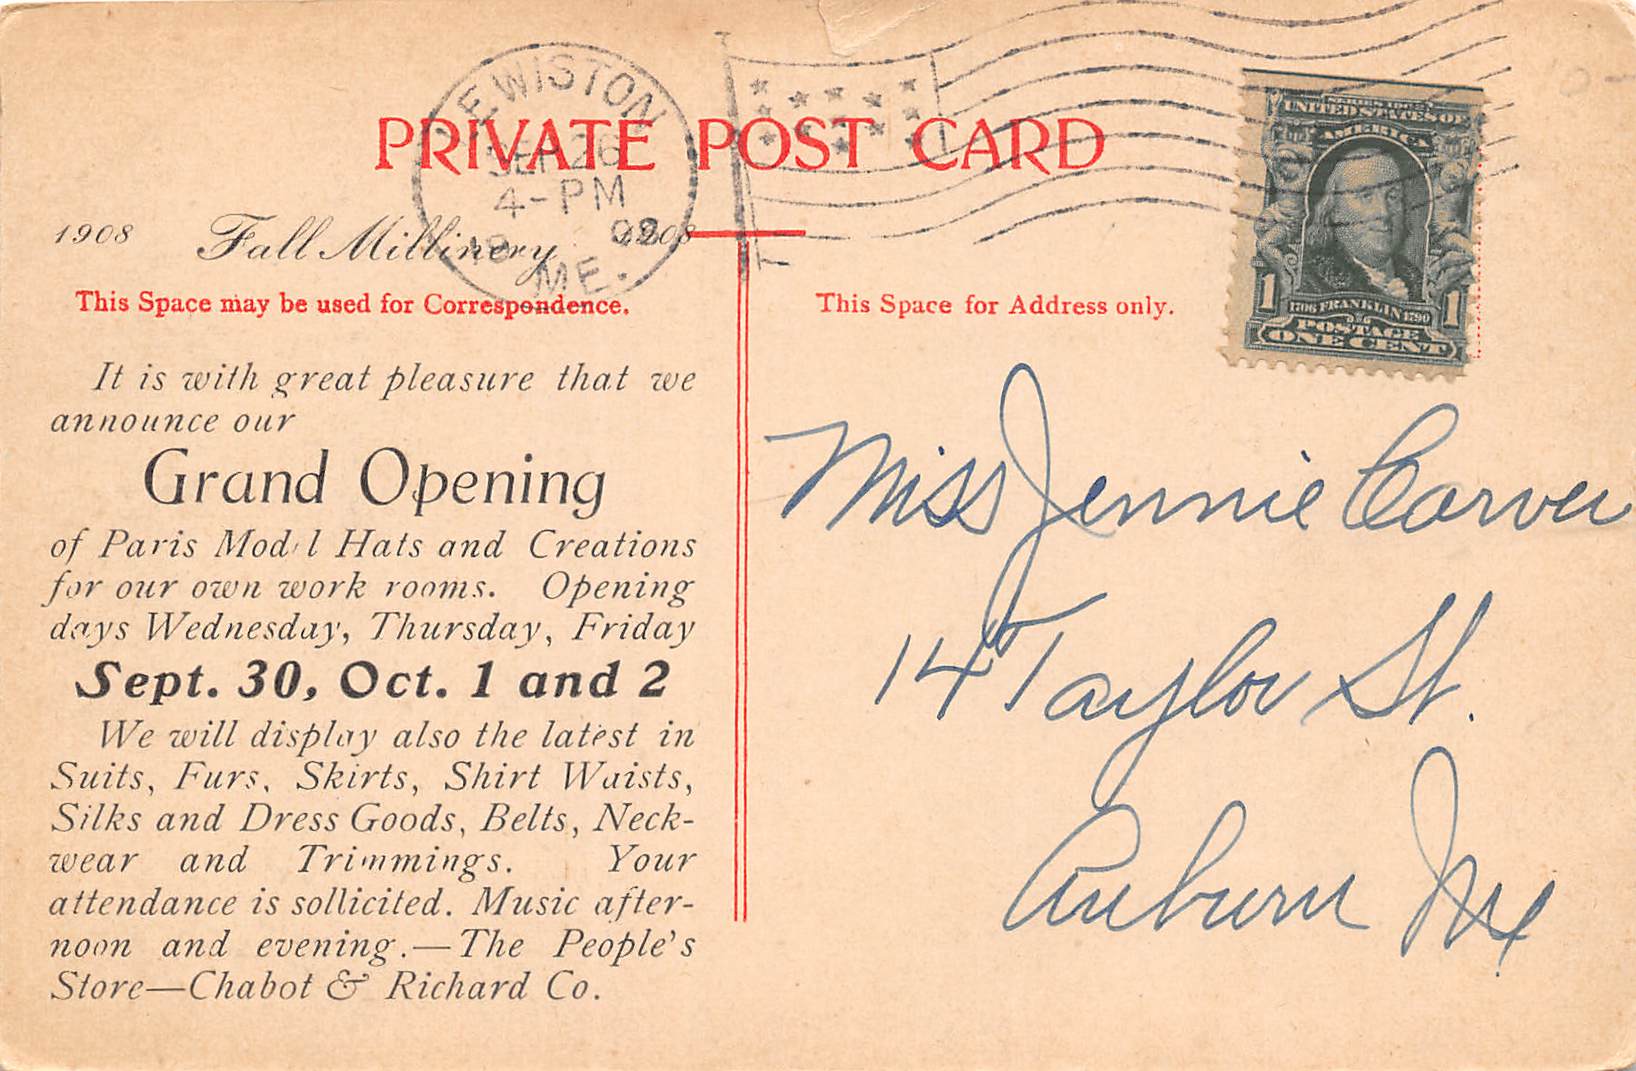 PRIVATE POST CARD
LEWISTON
SEP 26
4-PM
1908
ME.
UNITED STATES OF
AMERICA
1 1
1706 FRANKLIN 1790
POSTAGE
ONE CENT
1908 Fall Millinery 1908
This Space may be used for Correspondence.
It is with great pleasure that we
announce our
Grand Opening
of Paris Model Hats and Creations
for our own work rooms. Opening
days Wednesday, Thursday, Friday
Sept. 30, Oct. 1 and 2
We will display also the latest in
Suits, Furs, Skirts, Shirt Waists,
Silks and Dress Goods, Belts, Neck-
wear and Trimmings. Your
attendance is sollicited. Music after-
noon and evening.—The People's
Store—Chabot & Richard Co.
This Space for Address only.
Miss Jennie Carver
14 Taylor St.
Auburn Me